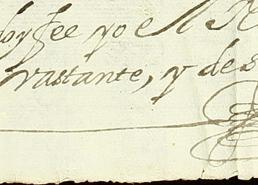 oy fee yo el R
rastante, y des